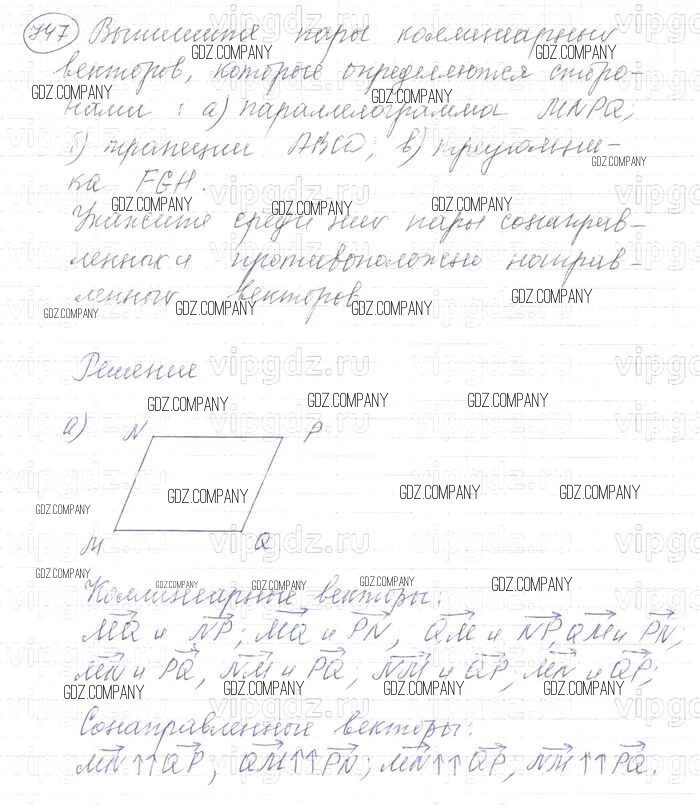 747 Выпишите пары коллинеарных
векторов, которые определяются сторо-
нами : а) параллелограмма MNPQ;
б) трапеции ABCD; в) треугольни-
ка FGH.
Укажите среди них пары сонаправ-
ленных и противоположено направ-
ленных векторов
Решение
а) N P
M Q
Коллинеарные векторы:
MQ и NP; MQ и PN, QM и NP, QM и PN;
MN и PQ, NM и PQ; NM и QP, MN и QP;
Сонаправленные векторы:
MN↑↑QP, QM↑↑PN; MN↑↑QP, NM↑↑PQ.
GDZ.COMPANY
vipgdz.ru